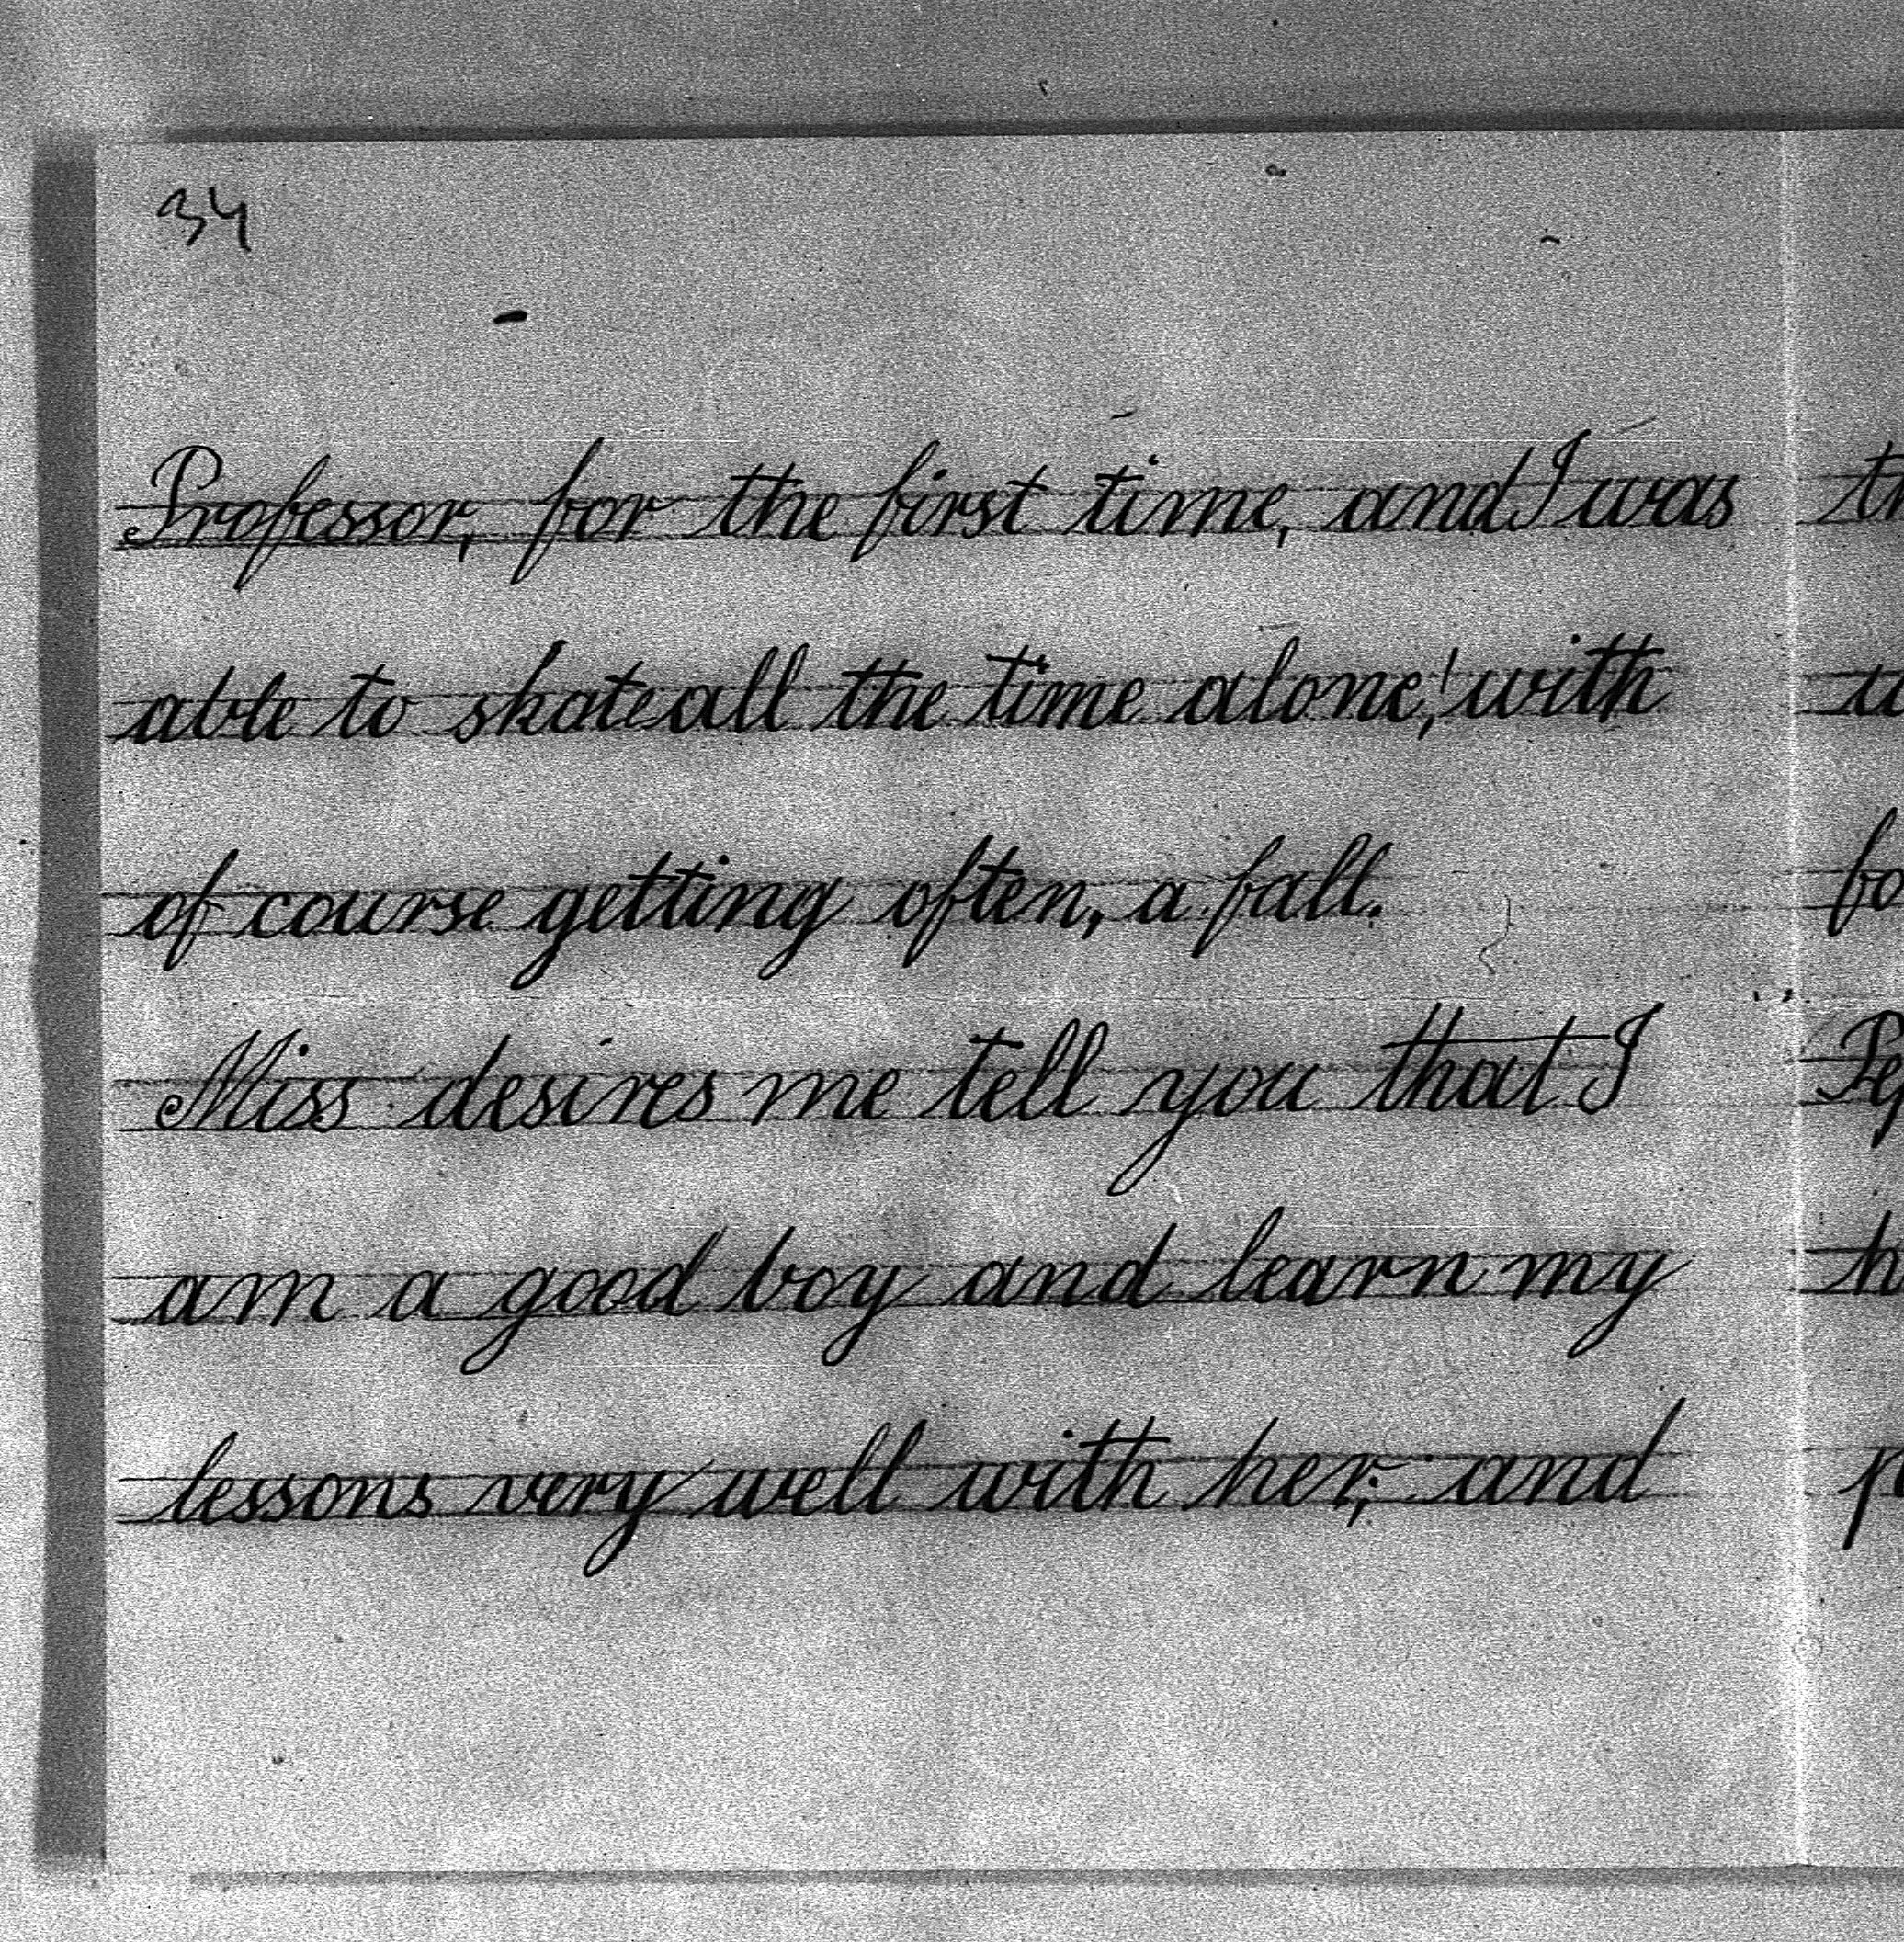 34
Professor, for the first time, and I was
able to skate all the time alone, with
of course getting often, a fall.
Miss desires me tell you that I
am a good boy and learn my
lessons very well with her; and